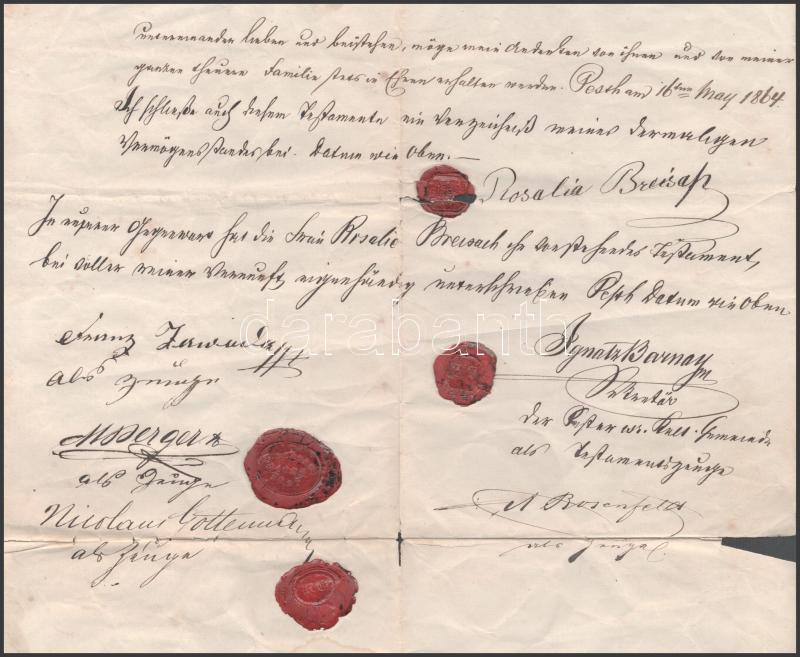 untereinander lieben und beistehen, möge mein Andenken von ihnen und von meiner
ganzen theuern Familie stets in Ehren erhalten werden. Pesth am 16ten May 1864.
Ich schließe auch diesem Testamente ein Verzeichniß meines dermaligen
Vermögensstandes bei. Datum wie Oben.—
Rosalia Breisach
In unserer Gegenwart hat die Frau Rosalie Breisach ihr vorstehendes Testament,
bei voller reiner Vernunft, eigenhändig unterschrieben Pesth Datum wie Oben
Franz
als Zeuge
Ignatz Barnay
Sekretär
der Pester isr. Kult. Gemeinde
als Testamentszeuge
MBerger
als Zeuge
Nicolaus
als Zeuge
A Rosenfeld
als Zeuge
darabanth